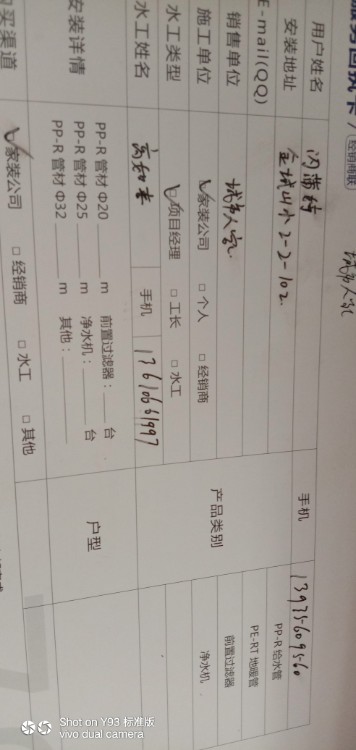 经销商联
城市人家
用户姓名 闪 手机
安装地址 2-2-102
E-mail(QQ)
销售单位 城市人家
施工单位 ✓家装公司 □个人 □经销商
水工类型 ✓项目经理 □工长 □水工
水工姓名 手机 17610661997
产品类别
PP-R 给水管
PE-RT 地暖管
前置过滤器
净水机
安装详情
PP-R 管材 Φ20 ____ m 前置过滤器：____ 台
PP-R 管材 Φ25 ____ m 净水机：____ 台
PP-R 管材 Φ32 ____ m 其他：____
户型
买渠道 ✓家装公司 □经销商 □水工 □其他
Shot on Y93 标准版
vivo dual camera